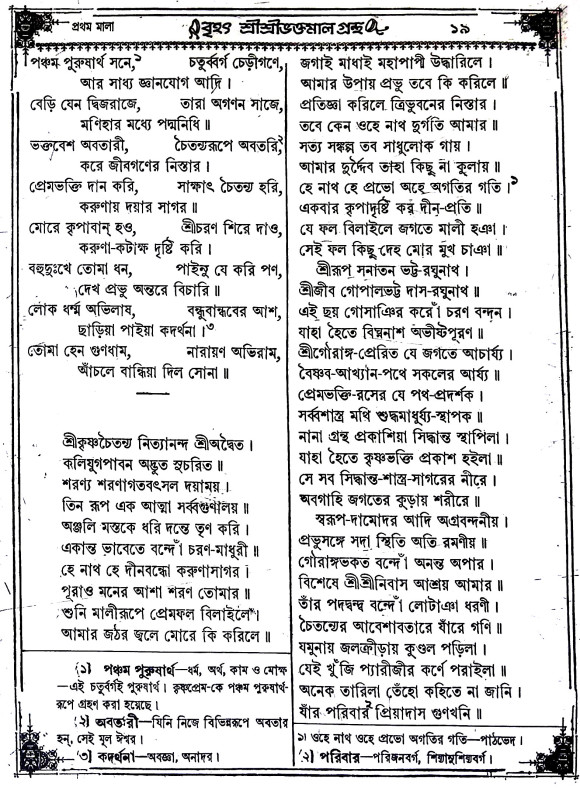 প্রথম মালা
বৃহৎ শ্রীশ্রীভক্তমাল গ্রন্থ
১৯
পঞ্চম পুরুষার্থ সনে,১ চতুর্ব্বর্গ চেড়ীগণে,
আর সাধ্য জ্ঞানযোগ আদি।
বেড়ি যেন দ্বিজরাজে, তারা অগণন সাজে,
মণিহার মধ্যে পদ্মনিধি॥
ভক্তবেশ অবতারী, চৈতন্যরূপে অবতরি,২
করে জীবগণের নিস্তার।
প্রেমভক্তি দান করি, সাক্ষাৎ চৈতন্য হরি,
করুণায় দয়ার সাগর॥
মোরে কৃপাবান্ হও, শ্রীচরণ শিরে দাও,
করুণা-কটাক্ষ দৃষ্টি করি।
বহুদুঃখে তোমা ধন, পাইনু যে করি পণ,
দেখ প্রভু অন্তরে বিচারি॥
লোক ধর্ম্ম অভিলাষ, বন্ধুবান্ধবের আশ,
ছাড়িয়া পাইয়া কদর্থনা।৩
তোমা হেন গুণধাম, নারায়ণ অভিরাম,
আঁচলে বান্ধিয়া দিল সোনা॥
শ্রীকৃষ্ণচৈতন্য নিত্যানন্দ শ্রীঅদ্বৈত।
কলিযুগপাবন অদ্ভুত সুচরিত॥
শরণ্য শরণাগতবৎসল দয়াময়।
তিন রূপ এক আত্মা সর্ব্বগুণালয়॥
অঞ্জলি মস্তকে ধরি দন্তে তৃণ করি।
একান্ত ভাবেতে বন্দোঁ চরণ-মাধুরী॥
হে নাথ হে দীনবন্ধো করুণাসাগর।
পূরাও মনের আশা শরণ তোমার॥
শুনি মালীরূপে প্রেমফল বিলাইলে।
আমার জঠর জ্বলে মোরে কি করিলে॥
(১) পঞ্চম পুরুষার্থ—ধর্ম, অর্থ, কাম ও মোক্ষ
—এই চতুর্বর্গই পুরুষার্থ। কৃষ্ণপ্রেম-কে পঞ্চম পুরুষার্থ-
রূপে গ্রহণ করা হয়েছে।
(২) অবতারী—যিনি নিজে বিভিন্নরূপে অবতার
হন, সেই মূল ঈশ্বর।
(৩) কদর্থনা—অবজ্ঞা, অনাদর।
জগাই মাধাই মহাপাপী উদ্ধারিলে।
আমার উপায় প্রভু তবে কি করিলে॥
প্রতিজ্ঞা করিলে ত্রিভুবনের নিস্তার।
তবে কেন ওহে নাথ দুর্গতি আমার॥
সত্য সঙ্কল্প তব সাধুলোক গায়।
আমার দুর্দ্দৈব তাহা কিছু না কুলায়॥
হে নাথ হে প্রভো অহে অগতির গতি।১
একবার কৃপাদৃষ্টি কর দীন-প্রতি॥
যে ফল বিলাইলে জগতে মালী হঞা।
সেই ফল কিছু দেহ মোর মুখ চাঞা॥
শ্রীরূপ সনাতন ভট্ট-রঘুনাথ।
শ্রীজীব গোপালভট্ট দাস-রঘুনাথ॥
এই ছয় গোসাঞির করোঁ চরণ বন্দন।
যাহা হৈতে বিঘ্ননাশ অভীষ্টপূরণ॥
শ্রীগৌরাঙ্গ-প্রেরিত যে জগতে আচার্য্য।
বৈষ্ণব-আখ্যান-পথে সকলের আর্য্য॥
প্রেমভক্তি-রসের যে পথ-প্রদর্শক।
সর্ব্বশাস্ত্র মথি শুদ্ধমাধুর্য্য-স্থাপক॥
নানা গ্রন্থ প্রকাশিয়া সিদ্ধান্ত স্থাপিলা।
যাহা হৈতে কৃষ্ণভক্তি প্রকাশ হইলা॥
সে সব সিদ্ধান্ত-শাস্ত্র-সাগরের নীরে।
অবগাহি জগতের কুড়ায় শরীরে॥
স্বরূপ-দামোদর আদি অগ্রবন্দনীয়।
প্রভুসঙ্গে সদা স্থিতি অতি রমণীয়॥
গৌরাঙ্গভকত বন্দোঁ অনন্ত অপার।
বিশেষে শ্রীশ্রীনিবাস আশ্রয় আমার॥
তাঁর পদদ্বন্দ্ব বন্দোঁ লোটাঞা ধরণী।
চৈতন্যের আবেশাবতারে যাঁরে গণি॥
যমুনায় জলক্রীড়ায় কুণ্ডল পড়িলা।
যেই খুঁজি প্যারীজীর কর্ণে পরাইলা॥
অনেক তারিলা তেঁহো কহিতে না জানি।
যাঁর পরিবার২ প্রিয়াদাস গুণখনি॥
১। ওহে নাথ ওহে প্রভো অগতির গতি—পাঠভেদ।
(২) পরিবার—পরিজনবর্গ, শিষ্যানুশিষ্যবর্গ।